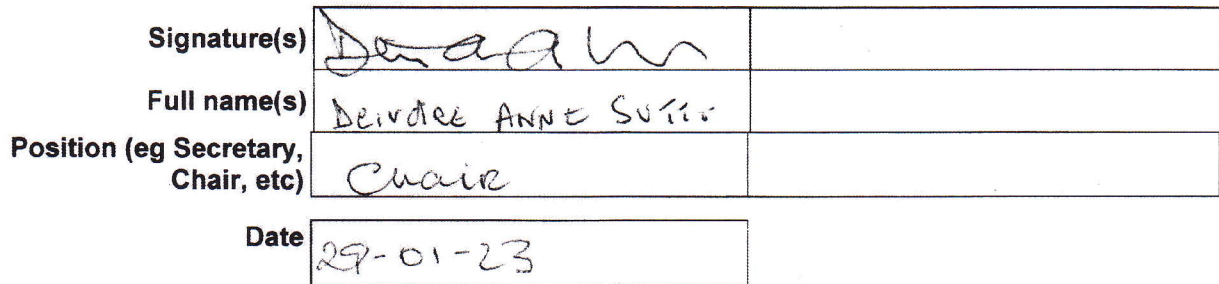 Signature(s)
Full name(s) Deirdre ANNE
Position (eg Secretary,
Chair, etc) Chair
Date 29-01-23